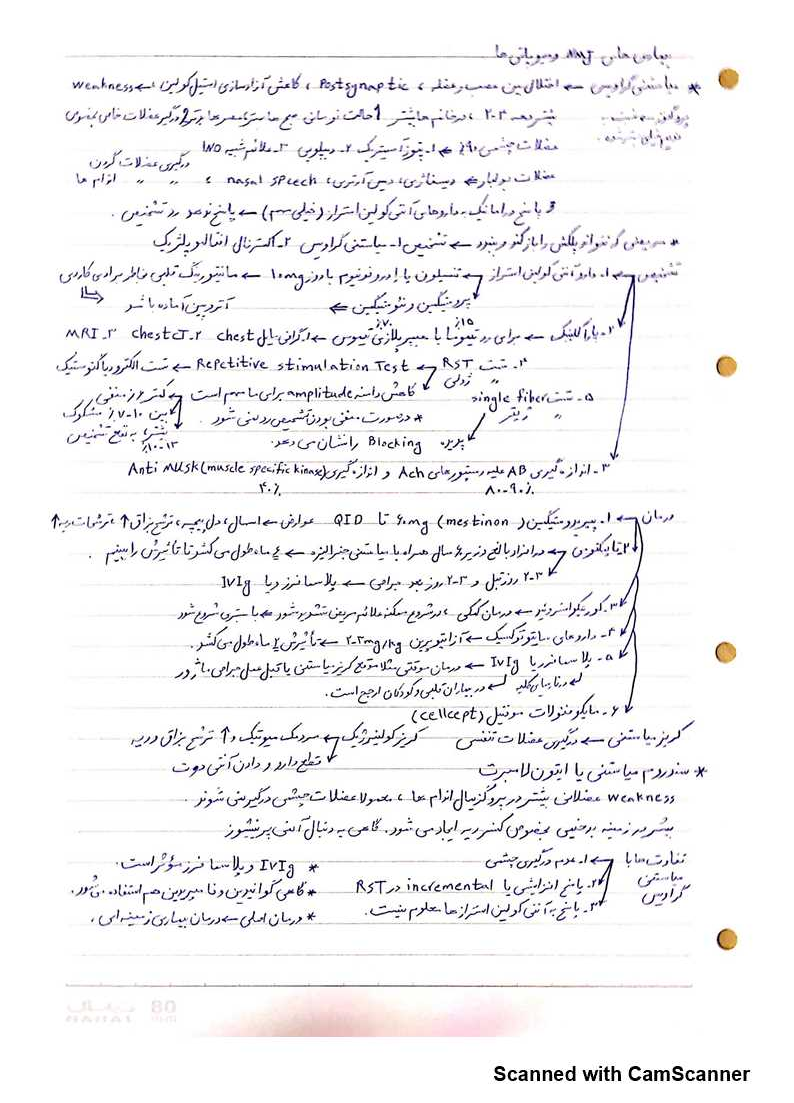 بیماری های NMJ و میوپاتی ها
* میاستنی گراویس ← اختلالی بین عصب و عضله ، Postsynaptic ، کاهش آزادسازی استیل کولین ← weakness
بیشتر دهه ۳-۲ ، در خانم ها بیشتر
عضلات چشمی ۹۰٪ ← ۱- پتوز آسیمتریک ۲- دیپلوپی ۳- علائم شبیه INO
درگیری عضلات گردن
عضلات بولبار ← دیسفاژی ، دیس آرتری ، nasal speech ، " " اندام ها
و پاسخ دراماتیک به داروهای آنتی کولین استراز (خیلی مهم) ← پاسخ ندهد رد تشخیص .
* مریضی که نتواند پلکش را باز کند و ببندد ← تشخیص ۱- میاستنی گراویس ۲- اکسترنال افتالموپلژیک
تشخیص ← ۱- داروی آنتی کولین استراز ← تنسیلون یا ادروفونیوم با دوز ۱۰mg ← مانیتورینگ قلبی بخاطر برادی کاردی
پیریدوستیگمین و نئوستیگمین ← آتروپین آماده باشد
۱۵٪ ۷۰٪
۲- پاراکلینیک ← برای رد تیموما یا هیپرپلازی تیموس ← ۱- گرافی ساده chest ۲- chest CT ۳- MRI
۴- تست RST ← Repetitive stimulation Test ← تست الکترودیاگنوستیک
" ژولی
کاهش دامنه amplitude برای ما مهم است ← کمتر ۶٪ منفی
بین ۱۰-۷٪ مشکوک
بیشتر ۱۳-۱۰٪ به نفع تشخیص
۵- تست single fiber
" ژیتر
* در صورت منفی بودن تشخیص رد نمی شود .
پدیده Blocking را نشان می دهد.
۳- اندازه گیری AB علیه رسپتورهای Ach و اندازه گیری Anti MUSK (muscle specific kinase)
۸۰-۹۰٪ ۴۰٪
درمان ← ۱- پیریدوستیگمین (mestinon) ۶۰mg تا QID عوارض ← اسهال ، دل پیچه ، ترشح بزاق ↑ ، ترشحات ریه ↑
۲- تایمکتومی ← در افراد بالغ و زیر ۶۰ سال همراه با میاستنی جنرالیزه ← ۶ ماه طول می کشد تا تأثیرش را ببینیم .
۳-۲ روز قبل و ۳-۲ روز بعد جراحی ← پلاسمافرز و یا IVIg
۳- کورتیکواستروئید ← درمان کمکی ، در شروع ممکنه علائم مریض تشدید شود ← با بستری شروع شود
۴- داروهای سایتوتوکسیک ← آزاتیوپرین ۲-۳mg/kg ← تأثیرش ۶ ماه طول می کشد .
۵- پلاسمافرز یا IVIg ← درمان موقتی مثلا موقع کریز میاستنی یا قبل عمل جراحی ماژور
در نارسایی کلیه ← در بیماران قلبی و کودکان ارجح است.
۶- مایکوفنولات موفتیل (cellcept)
کریز میاستنی ← درگیری عضلات تنفسی کریز کولینرژیک ← مردمک میوتیک و ↑ ترشح بزاق و ریه
← قطع دارو و دادن آنتی دوت
* سندروم میاستنی یا ایتون لامبرت
weakness عضلانی بیشتر در پروگزیمال اندام ها ، معمولا عضلات چشمی درگیر نمی شوند .
بیشتر در زمینه بدخیمی بخصوص کنسر ریه ایجاد می شود . گاهی به دنبال آنمی پرنیشیوز
تفاوت ها با میاستنی گراویس
۱- عدم درگیری چشمی
۲- پاسخ افزایشی یا incremental در RST
۳- پاسخ به آنتی کولین استرازها معلوم نیست .
* IVIg و پلاسمافرز مؤثر است .
* گاهی گوانیدین و فامپریدین هم استفاده می شود .
* درمان اصلی ← درمان بیماری زمینه ای .
80
Scanned with CamScanner